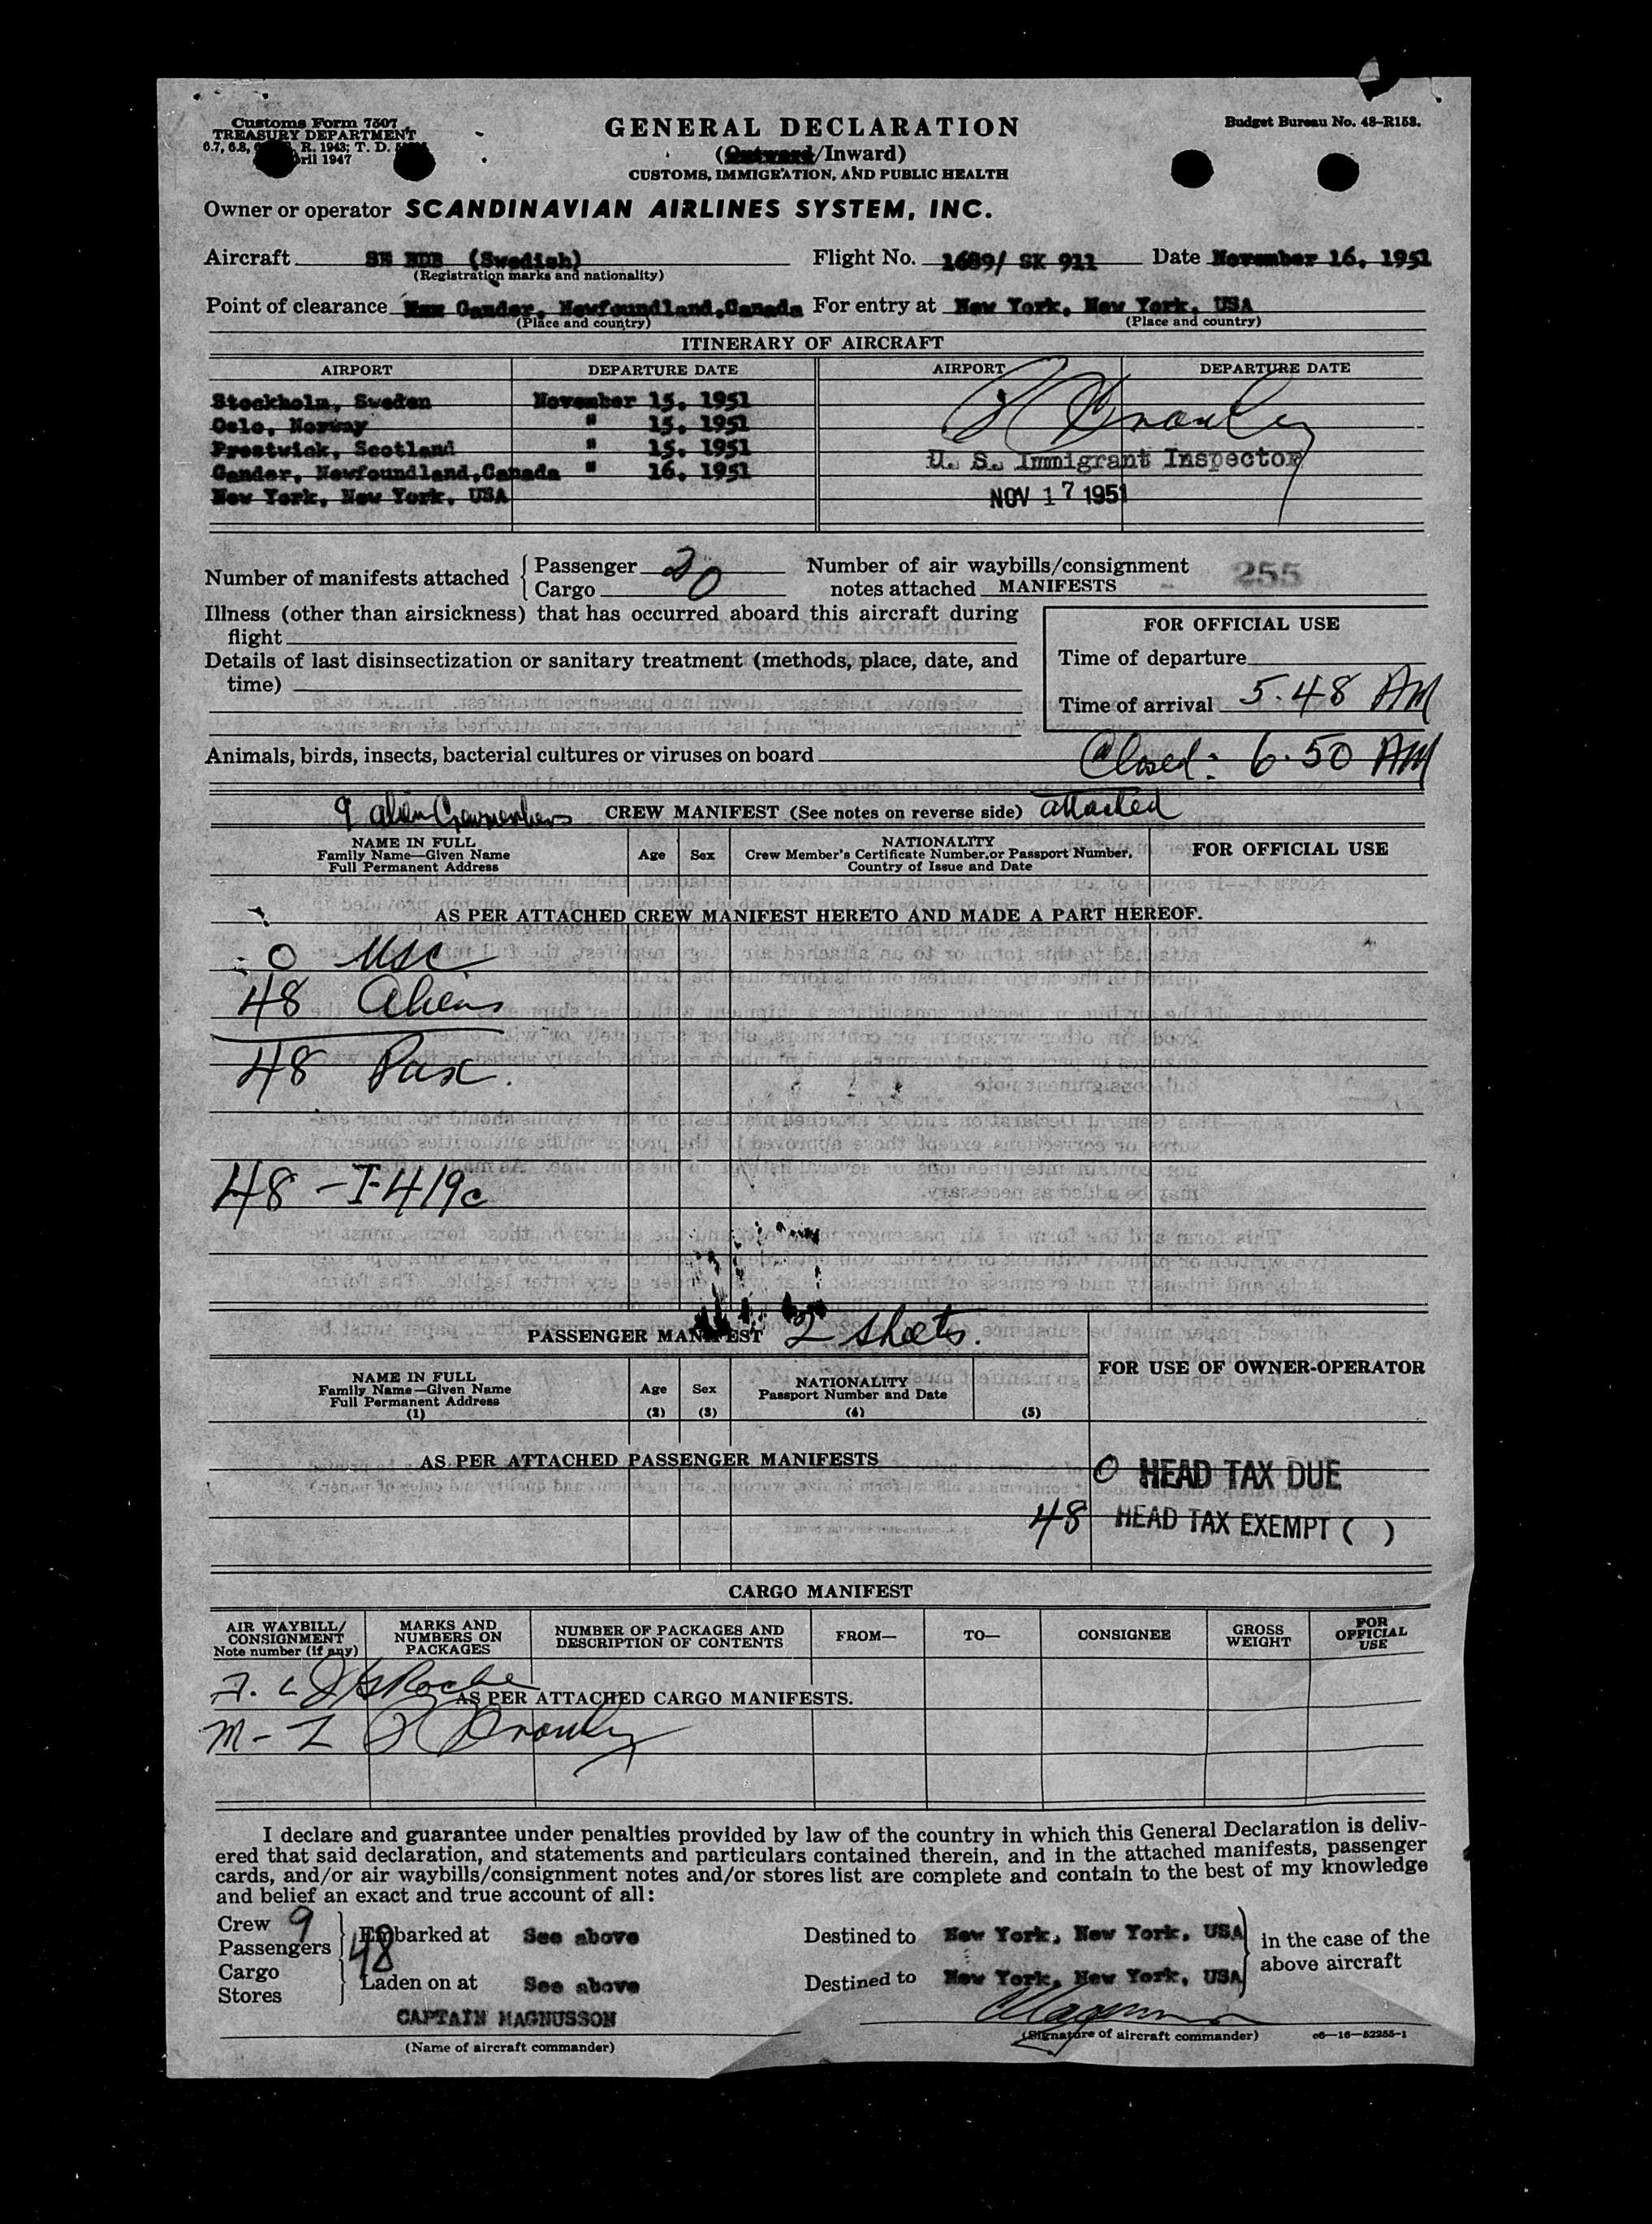 Customs Form 7507
TREASURY DEPARTMENT
6.7, 6.8, R. 1943; T. D.
ril 1947
GENERAL DECLARATION
(Outward/Inward)
CUSTOMS, IMMIGRATION, AND PUBLIC HEALTH
Budget Bureau No. 48-R153.
Owner or operator SCANDINAVIAN AIRLINES SYSTEM, INC.
Aircraft (Swedish) Flight No. 1689/ SK 911 Date November 16, 1951
(Registration marks and nationality)
Point of clearance Gander, Newfoundland,Canada For entry at New York, New York, USA
(Place and country) (Place and country)
ITINERARY OF AIRCRAFT
AIRPORT DEPARTURE DATE AIRPORT DEPARTURE DATE
Stockholm, Sweden November 15, 1951
Oslo, Norway " 15, 1951
Prestwick, Scotland " 15, 1951
Gander, Newfoundland,Canada " 16, 1951
New York, New York, USA
U. S. Immigrant Inspector
NOV 17 1951
Number of manifests attached { Passenger 20
Cargo
Number of air waybills/consignment
notes attached MANIFESTS
255
Illness (other than airsickness) that has occurred aboard this aircraft during
flight
Details of last disinsectization or sanitary treatment (methods, place, date, and
time)
FOR OFFICIAL USE
Time of departure
Time of arrival 5.48 AM
Animals, birds, insects, bacterial cultures or viruses on board
Closed: 6.50 AM
9 alien Crewmembers CREW MANIFEST (See notes on reverse side) attached
NAME IN FULL
Family Name—Given Name
Full Permanent Address
Age
Sex
NATIONALITY
Crew Member's Certificate Number or Passport Number,
Country of Issue and Date
FOR OFFICIAL USE
AS PER ATTACHED CREW MANIFEST HERETO AND MADE A PART HEREOF.
0 USC
48 Aliens
48 Pax.
48 - I-419c
PASSENGER MANIFEST 2 sheets.
FOR USE OF OWNER-OPERATOR
NAME IN FULL
Family Name—Given Name
Full Permanent Address
(1)
Age
(2)
Sex
(3)
NATIONALITY
Passport Number and Date
(4)
(5)
AS PER ATTACHED PASSENGER MANIFESTS
0 HEAD TAX DUE
48 HEAD TAX EXEMPT ( )
CARGO MANIFEST
AIR WAYBILL/
CONSIGNMENT
Note number (if any)
MARKS AND
NUMBERS ON
PACKAGES
NUMBER OF PACKAGES AND
DESCRIPTION OF CONTENTS
FROM—
TO—
CONSIGNEE
GROSS
WEIGHT
FOR
OFFICIAL
USE
AS PER ATTACHED CARGO MANIFESTS.
I declare and guarantee under penalties provided by law of the country in which this General Declaration is deliv-
ered that said declaration, and statements and particulars contained therein, and in the attached manifests, passenger
cards, and/or air waybills/consignment notes and/or stores list are complete and contain to the best of my knowledge
and belief an exact and true account of all:
Crew 9
Passengers 48
Embarked at See above
Destined to New York, New York, USA
in the case of the
above aircraft
Cargo
Stores
Laden on at See above
Destined to New York, New York, USA
CAPTAIN MAGNUSSON
(Name of aircraft commander)
(Signature of aircraft commander)
c6—16—52255-1